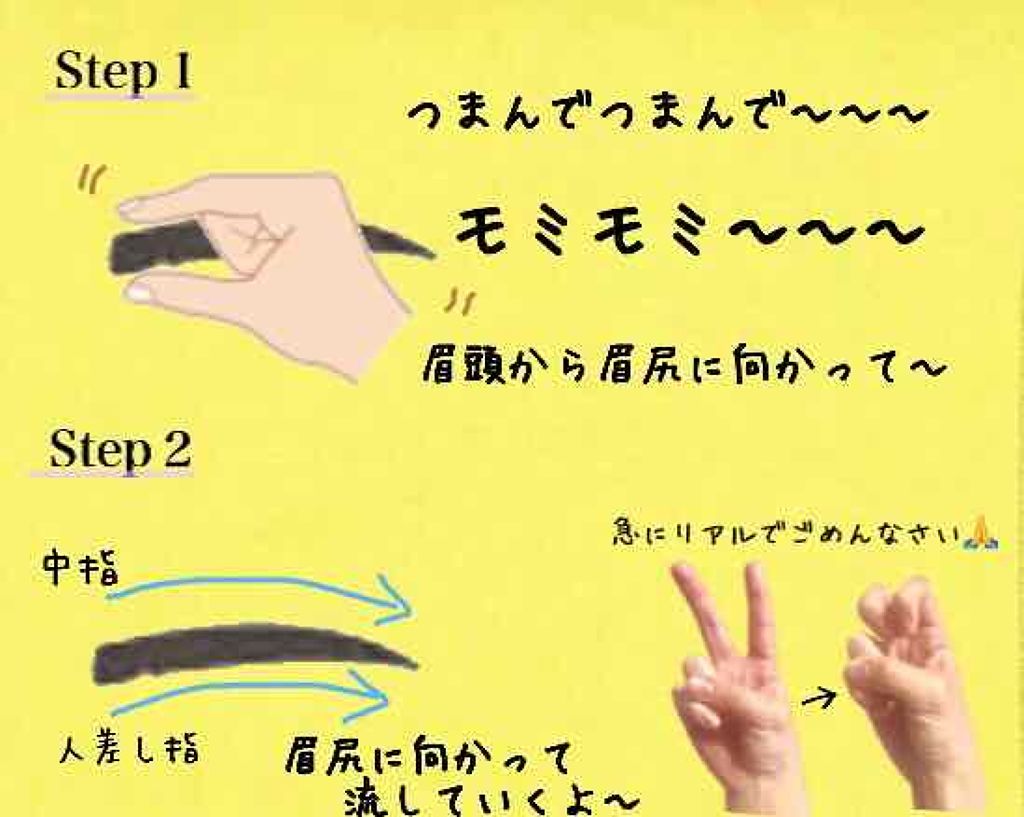 Step 1
つまんでつまんで〜〜〜
モミモミ〜〜〜
眉頭から眉尻に向かって〜
Step 2
急にリアルでごめんなさい🙏
中指
人差し指
眉尻に向かって
流していくよ〜